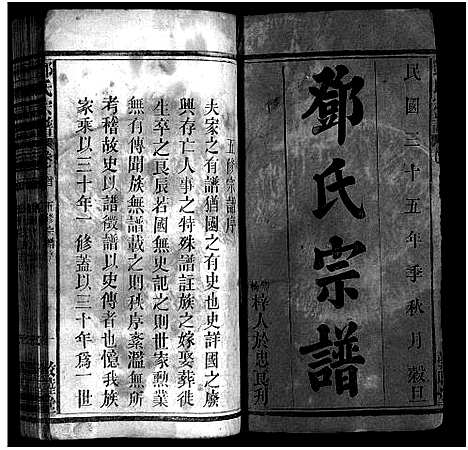 民國三十五年季秋月穀旦
鄧氏宗譜
梓人於忠良刋
五修宗譜序
夫家之有譜猶國之有史也史詳國之廢
興存亡人事之特殊譜註族之嫁娶葬徙
生卒之良辰若國無史記之則世家勲業
無有傳聞族無譜載之則秩序紊濫無所
考稽故史以譜徵譜以史傳者也憶我族
家乘以三十年一修蓋以三十年為一世
鄧氏宗譜